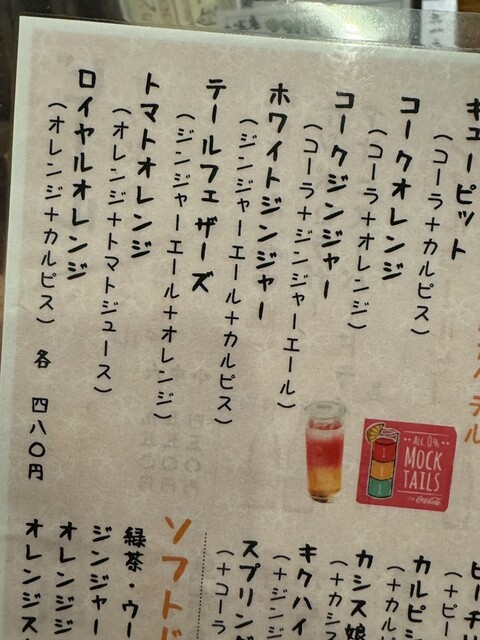 キューピット
（コーラ＋カルピス）
コークオレンジ
（コーラ＋オレンジ）
コークジンジャー
（コーラ＋ジンジャーエール）
ホワイトジンジャー
（ジンジャーエール＋カルピス）
テールフェザーズ
（ジンジャーエール＋オレンジ）
トマトオレンジ
（オレンジ＋トマトジュース）
ロイヤルオレンジ
（オレンジ＋カルピス） 各 四八〇円
テル
ALC.0%
MOCK
TAILS
Coca-Cola
ピーチ
カルピ
（＋カル
カシス娘
（＋カシ
キクハイ
（＋ジン
スプリング
（＋コーラ
ソフトド
緑茶・ウー
ジンジャー
オレンジジ
オレンジス